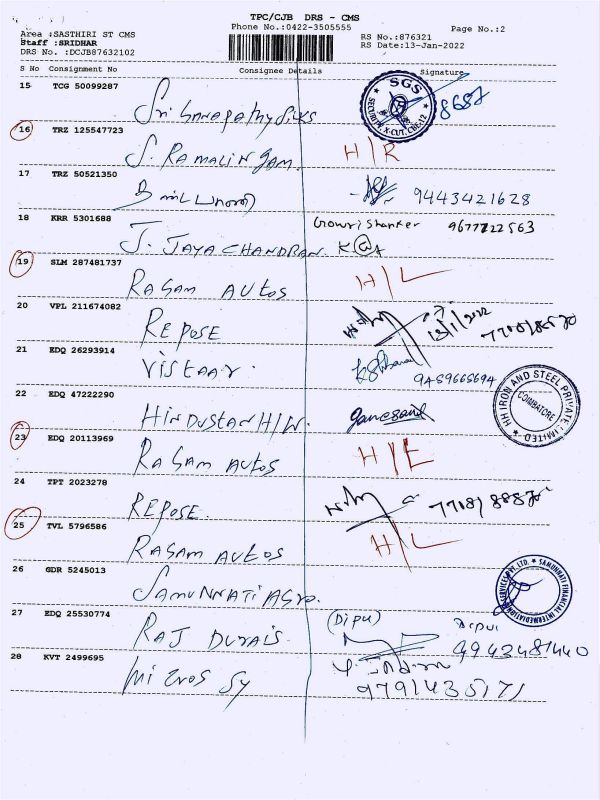 TPC/CJB DRS - CMS
Phone No.:0422-3505555
Page No.:2
Area :SASTHIRI ST CMS
Staff :SRIDHAR
DRS No. :DCJB87632102
RS No.:876321
RS Date:13-Jan-2022
S No Consignment No Consignee Details Signature
15 TCG 50099287
Sri Ganapathy Silks
SGS
8687
16 TRZ 125547723
S. RAMALINGAM. H/R
17 TRZ 50521350
9443421628
18 KRR 5301688
Gowri shanker 9677222563
J. JAYACHANDRAN.
19 SLM 287481737
RASAM AUTOS H/L
20 VPL 211674082
REPOSE 13/1/2022
21 EDQ 26293914
VISTAAR. 9459665694
22 EDQ 47222290
HINDUSTAN H/W.
HH IRON AND STEEL PRIVATE LIMITED
COIMBATORE
23 EDQ 20113969
RASAM AUTOS H/L
24 TPT 2023278
REPOSE
25 TVL 5796586
RASAM AUTOS H/L
26 GDR 5245013
SAMUNNATI AGRO.
SAMUNNATI FINANCIAL INTERMEDIATION SERVICES PVT. LTD.
27 EDQ 25530774
RAJ DURAIS. (Dipu) Dipu
9943481440
28 KVT 2499695
9791435171